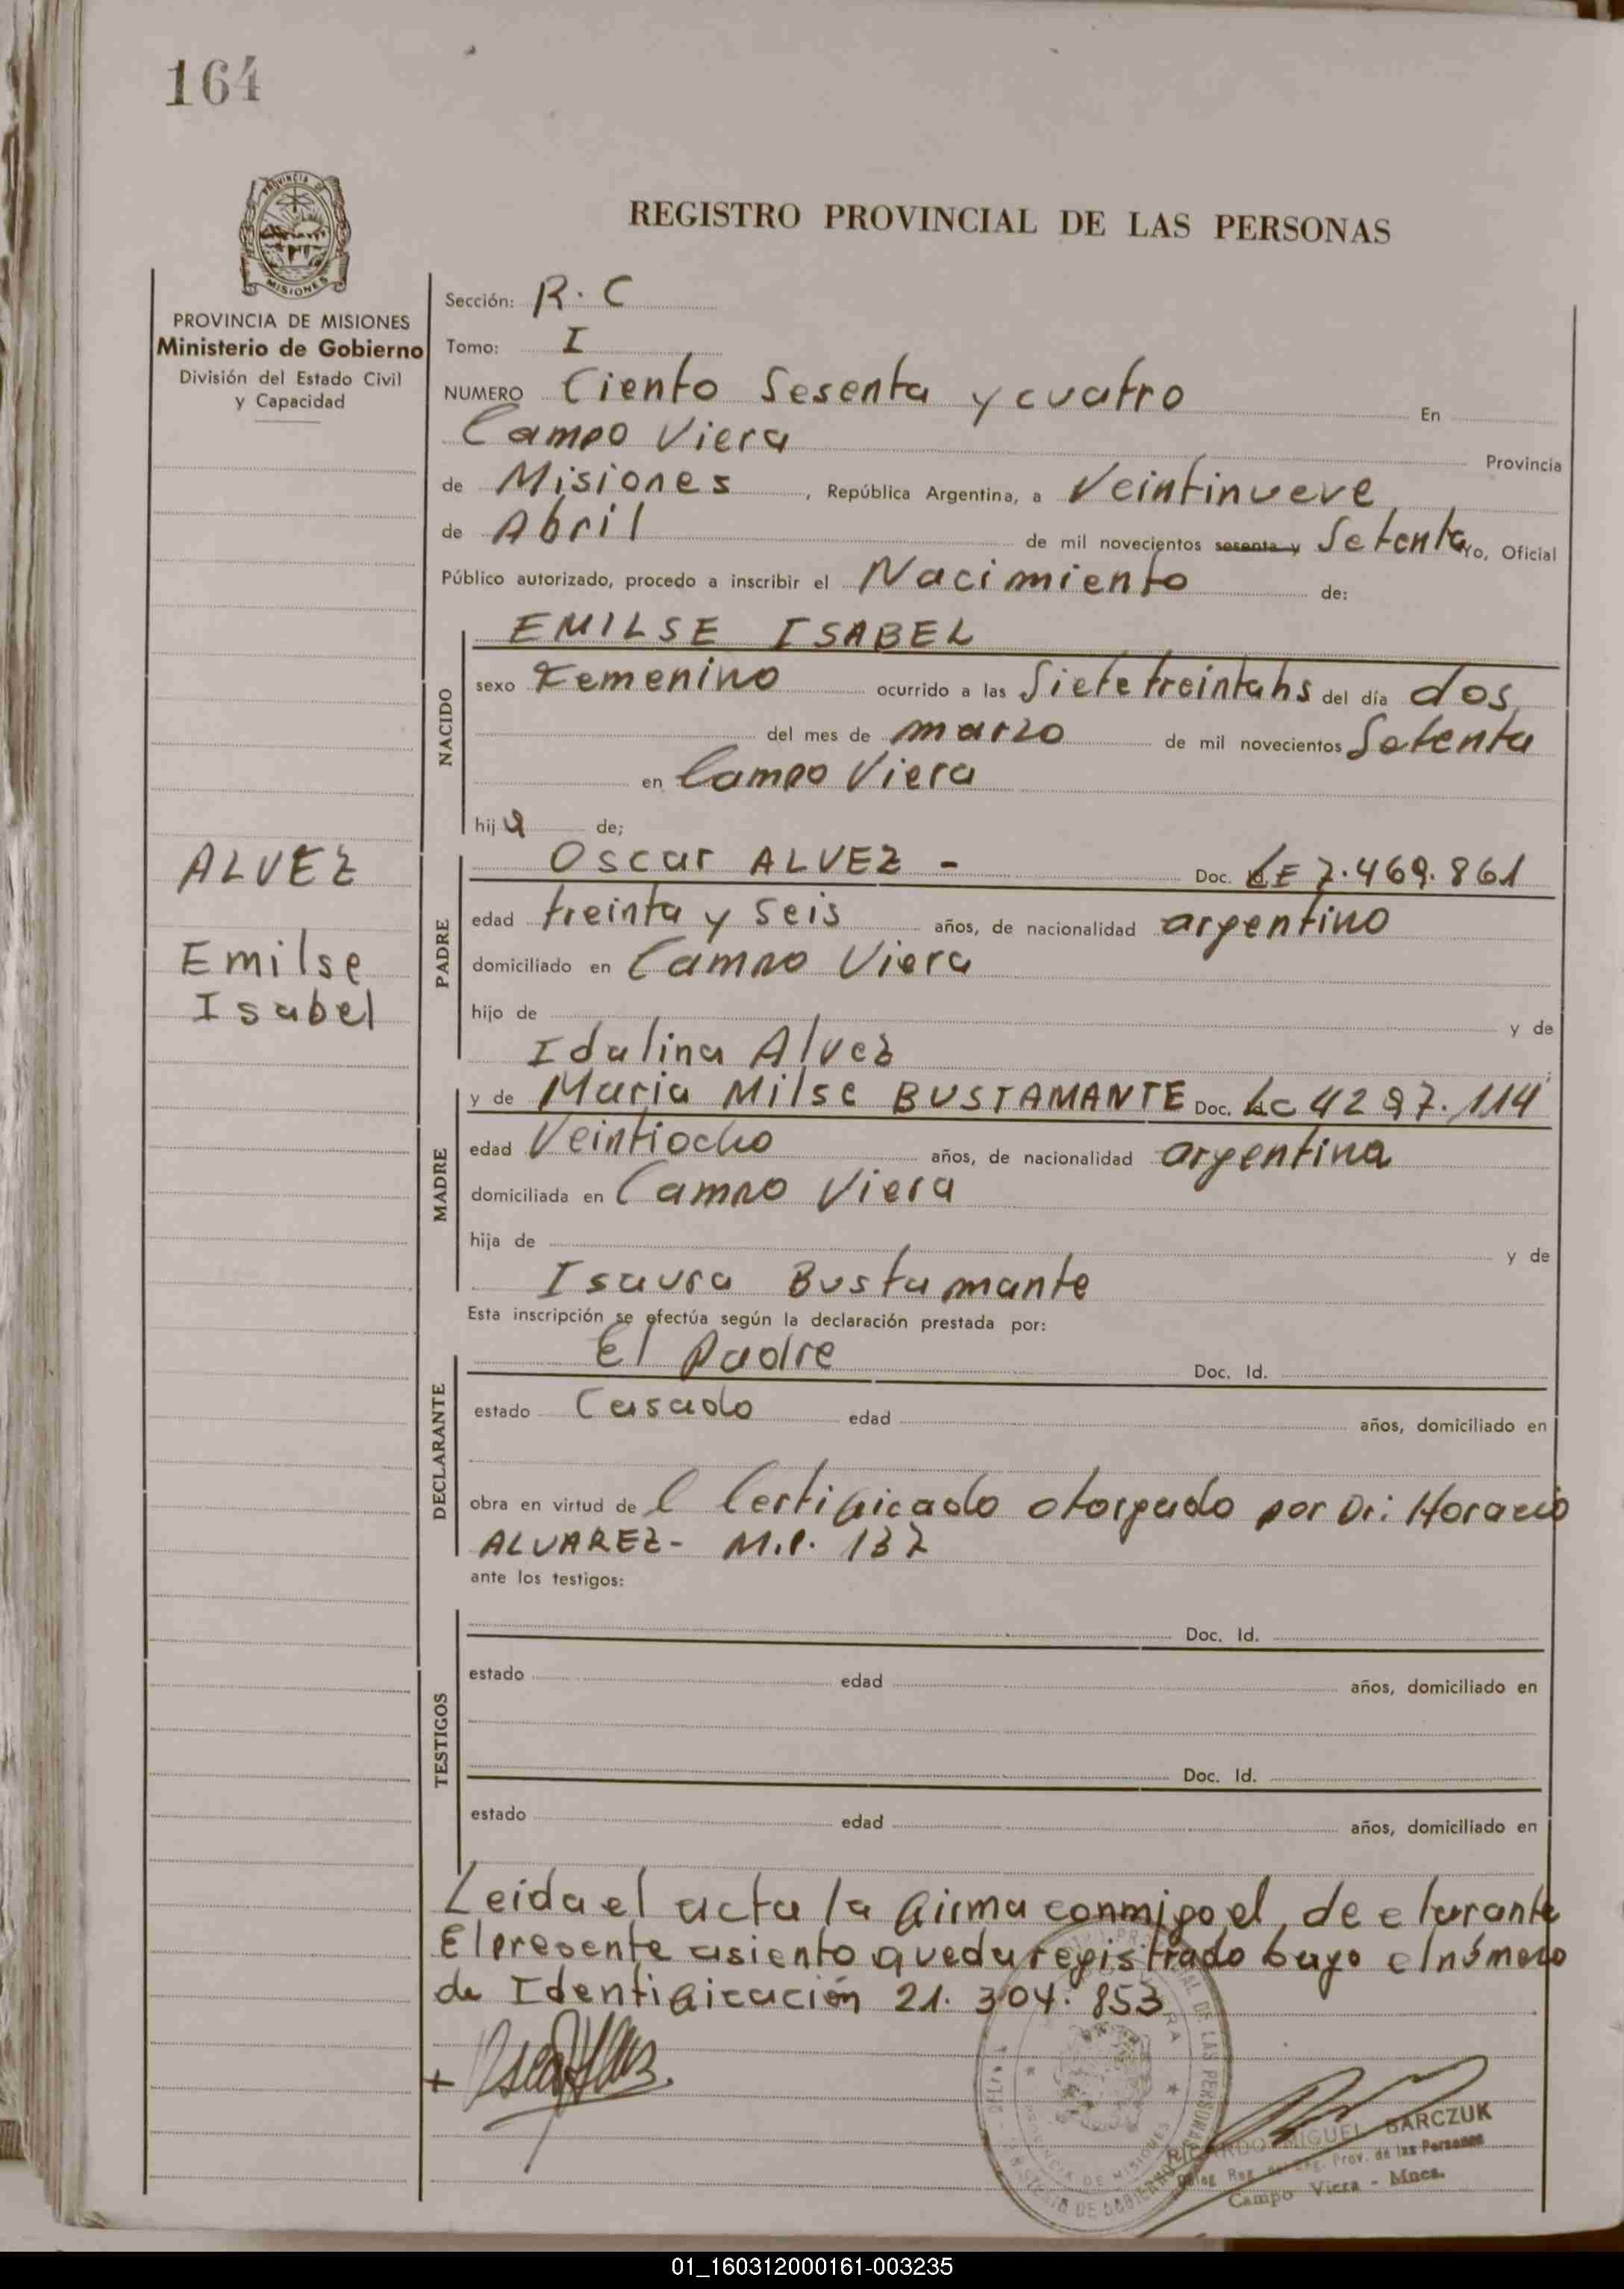 164
PROVINCIA DE MISIONES
REGISTRO PROVINCIAL DE LAS PERSONAS
PROVINCIA DE MISIONES
Ministerio de Gobierno
División del Estado Civil
y Capacidad
Sección: R. C
Tomo: I
NUMERO Ciento Sesenta y cuatro En
Campo Viera Provincia
de Misiones, República Argentina, a Veintinueve
de Abril de mil novecientos sesenta y Setenta Yo, Oficial
Público autorizado, procedo a inscribir el Nacimiento de:
NACIDO
EMILSE ISABEL
sexo Femenino ocurrido a las Siete treinta hs del día dos
del mes de marzo de mil novecientos Setenta
en Campo Viera
hija de;
ALVEZ
Emilse
Isabel
PADRE
Oscar ALVEZ - Doc. LE 7.469.861
edad treinta y seis años, de nacionalidad argentino
domiciliado en Campo Viera
hijo de y de
Idalina Alvez
MADRE
y de Maria Milse BUSTAMANTE Doc. LC 4297.114
edad Veintiocho años, de nacionalidad argentina
domiciliada en Campo Viera
hija de y de
Isaura Bustamante
Esta inscripción se efectúa según la declaración prestada por:
DECLARANTE
El padre Doc. Id.
estado Casado edad años, domiciliado en
obra en virtud de l Certificado otorgado por Dr: Horacio
ALVAREZ- M.P. 137
ante los testigos:
TESTIGOS
Doc. Id.
estado edad años, domiciliado en
Doc. Id.
estado edad años, domiciliado en
Leida el acta la firma conmigo el declarante
El presente asiento queda registrado bajo el número
de Identificación 21.304.853
MIGUEL BARCZUK
Prov. de las Personas
Campo Viera - Mnes.
01_160312000161-003235